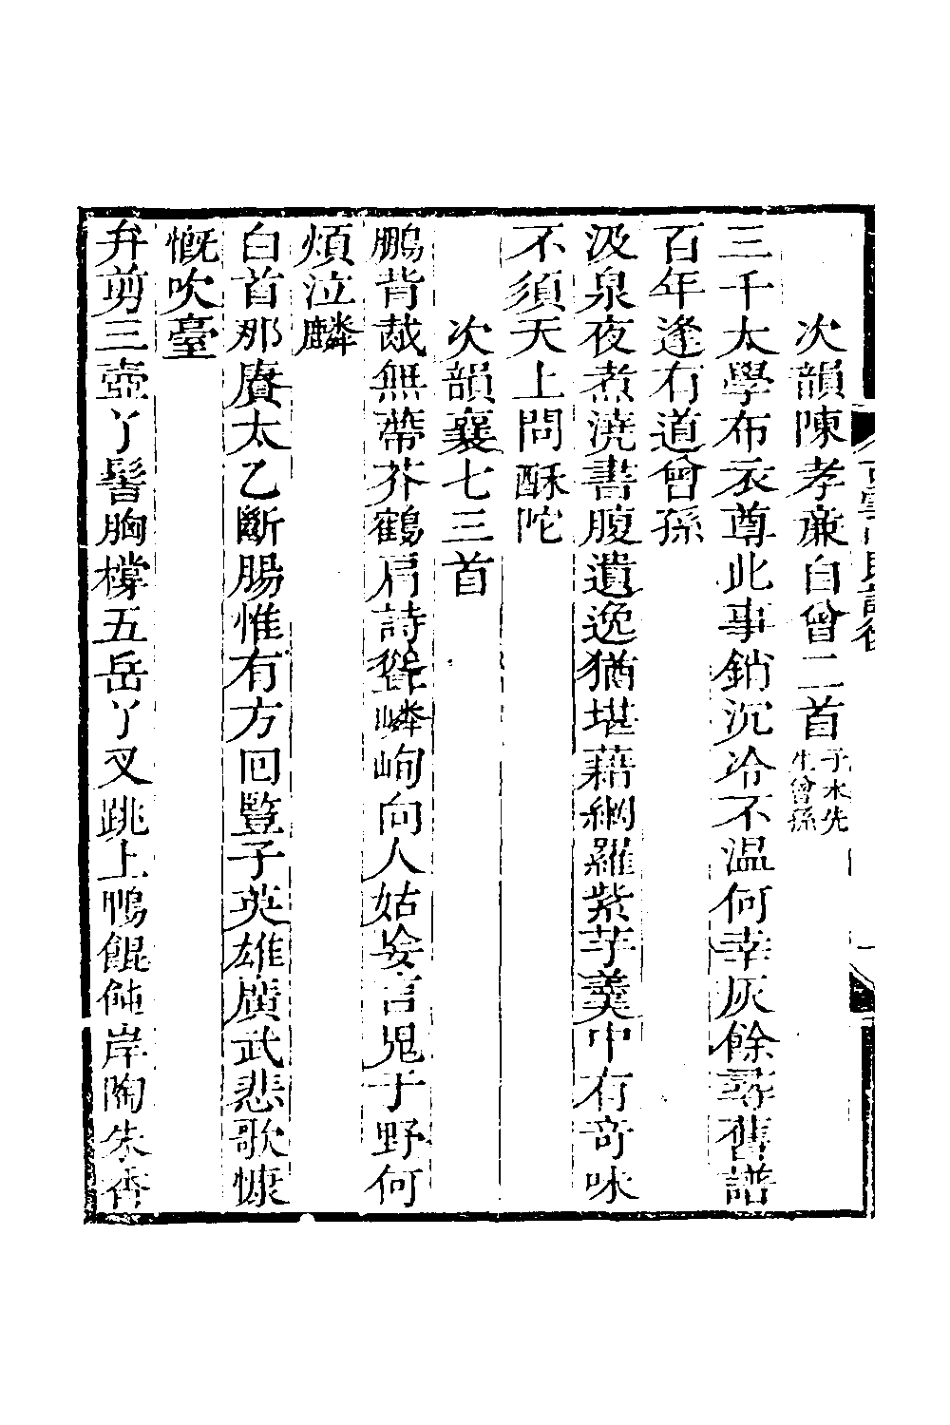 次韻陳孝廉自曾二首子木先生曾孫
三千太學布衣尊此事銷沉冷不温何幸灰餘尋舊譜
百年逢有道曾孫
汲泉夜煮澆書腹遺逸猶堪藉網羅紫芋羹中有奇味
不須天上問酥陀
次韻襄七三首
鵬背㦲無帶芥鶴肩詩聳嶙峋向人姑妄言鬼于野何
煩泣麟
白首那賡太乙斷腸惟有方回豎子英雄廣武悲歌慷
慨吹臺
弁剪三壺丫髻胸撐五岳丫叉跳上鴨餛飩岸陶朱香